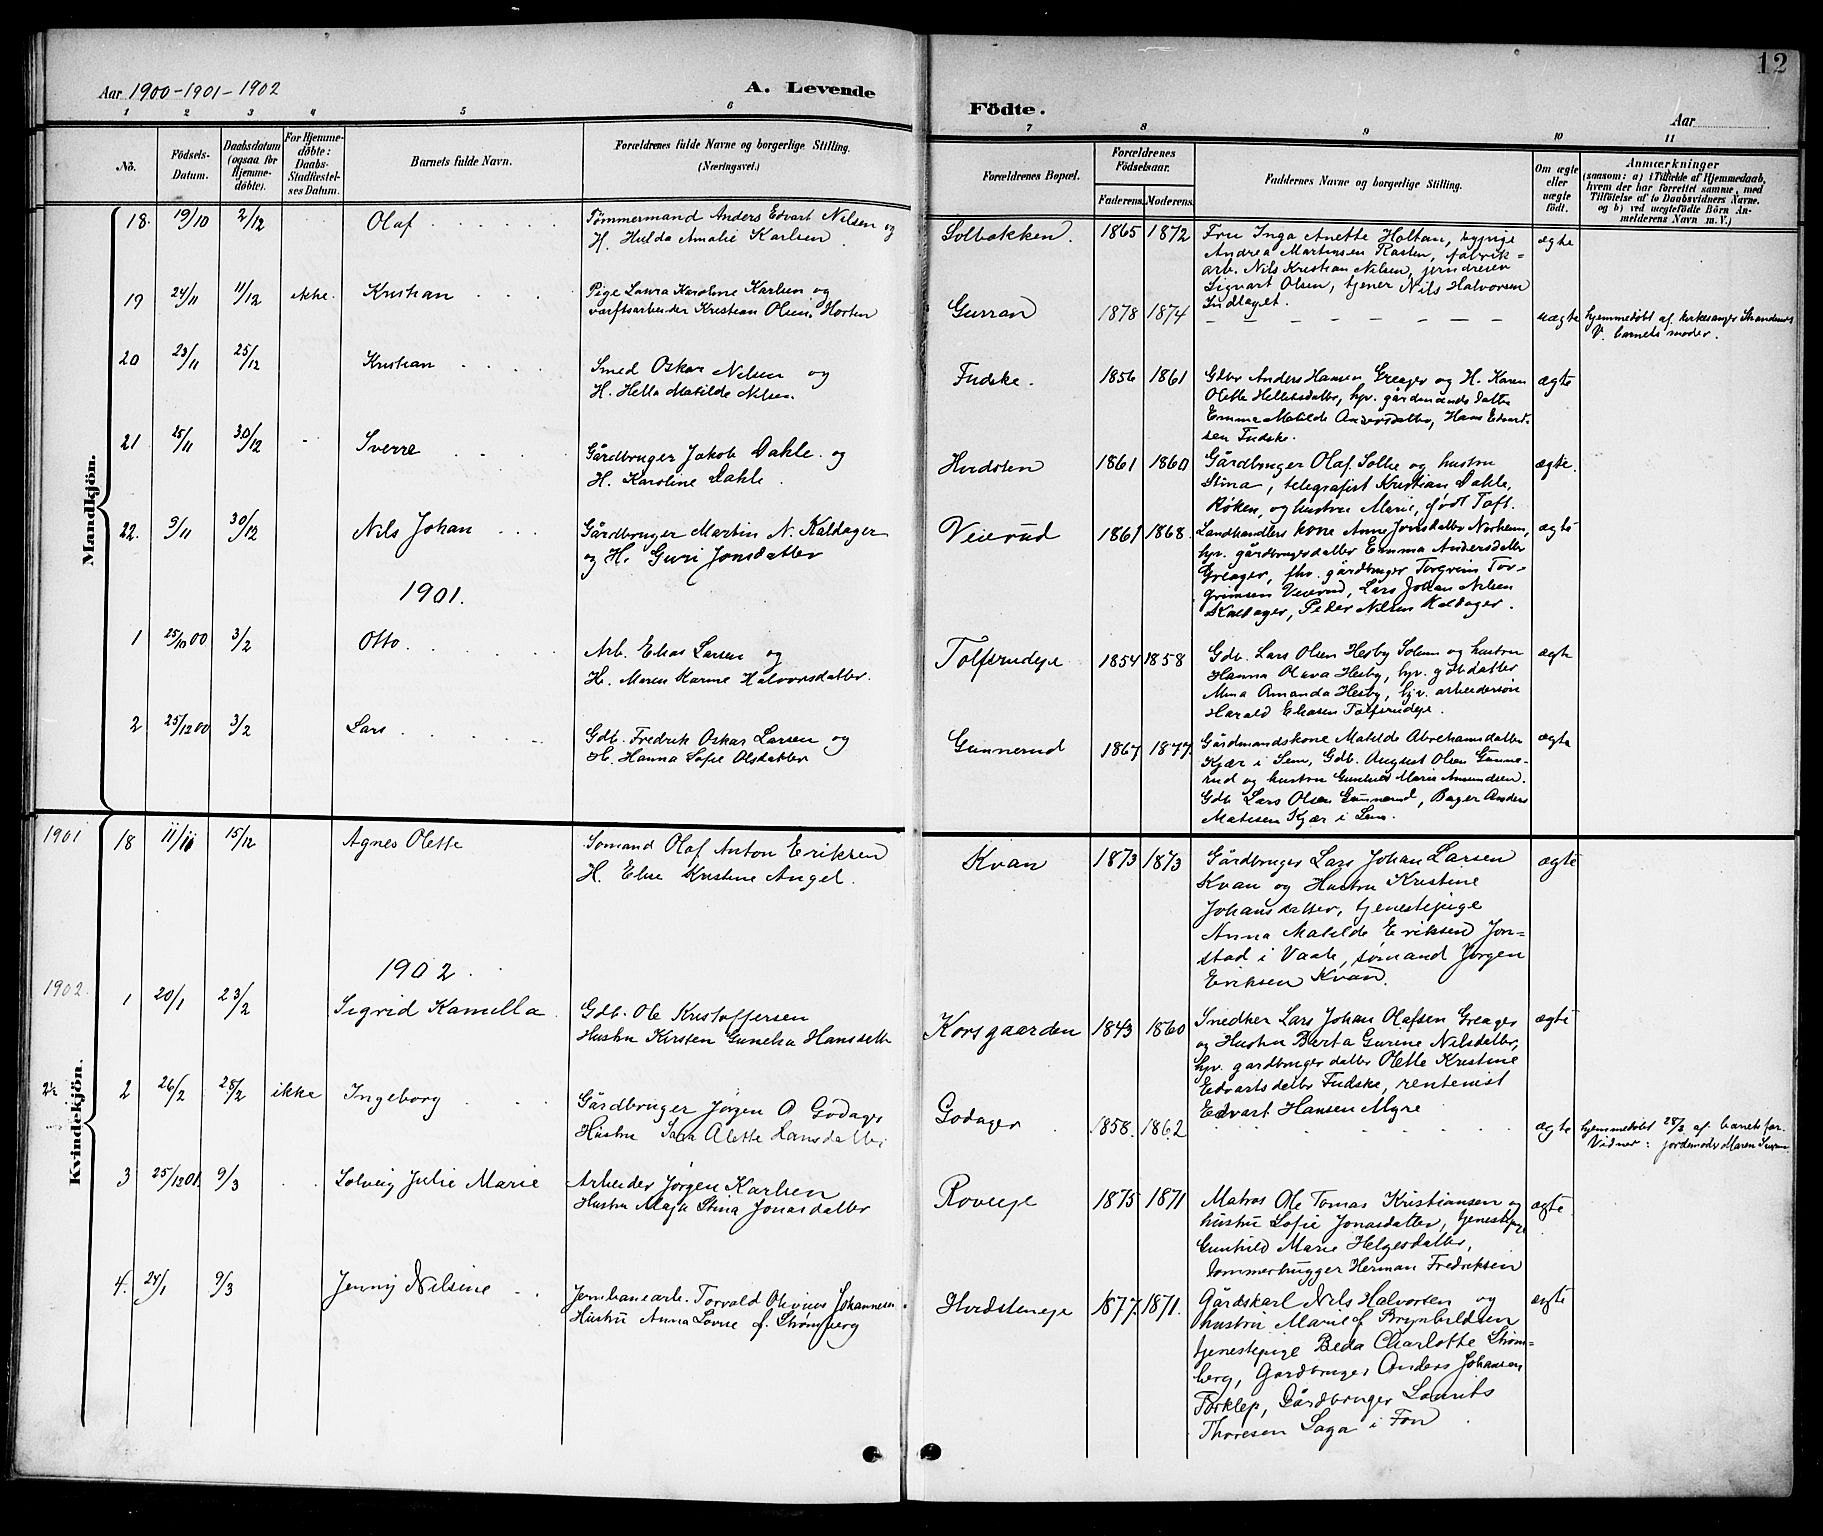 12
Aar 1900-1901-1902
A. Levende
Födte.
Aar
1 2 3 4 5 6 7 8 9 10 11
No.
Födsels-
Datum.
Daabsdatum
(ogsaa for
Hjemme-
døbte).
For Hjemme-
døbte:
Daabs-
Stadfæstel-
ses Datum.
Barnets fulde Navn.
Forældrenes fulde Navne og borgerlige Stilling.
(Næringsvei.)
Forældrenes Bopæl.
Forældrenes
Födselsaar.
Faderens. Moderens.
Faddernes Navne og borgerlige Stilling.
Om ægte
eller
uægte
födt.
Anmærkninger
(saasom: a) i Tilfælde af Hjemmedaab,
hvem der har forrettet samme, med
Tilföielse af to Daabsvidners Navne.
og b) ved uægtefödte Börn An-
melderens Navn m. V.)
Mandkjön.
18. 19/10 2/12 Olaf
Tømmermand Anders Edvart Nilsen og
H. Hulda Amalie Karlsen
Solbakken. 1865 1872
Fru Inga Anette Holtan, hypige
Andrea Martinsen Rasten, fabrik-
arb. Nils Kristian Nilsen, jerndreier
Sigvart Olsen, tjener Nils Halvorsen
Indlaget.
ægte
19 24/11 11/12 ikke. Kristian
Pige Laura Karoline Karlsen og
værftsarbeider Kristian Olsen, Horten
Gurran 1878 1874 uægte
hjemmedøbt af kirkesanger Strandenes
V. barnets moder.
20 23/11 25/12 Kristian
Smed Oskar Nilsen og
H. Hella Matilde Nilsen.
Fudske. 1856 1861
Gdbr Anders Hansen Greager og H. Karen
Olette Hellesdatter, hpv. gårdmands datter
Emma Matilde Andersdatter, Hans Edvard-
sen Fudske.
ægte
21 25/11 30/12 Sverre
Gårdbruger Jakob Dahle og
H. Karoline Dahle.
Hvidsten 1861 1860
Gårdbruger Olaf Solhe og hustru
Stina, telegrafist Kristian Dahle,
Røken, og hustru Marie, født Toft.
ægte.
22. 9/11 30/12 Nils Johan
Gårdbruger Martin N. Kaldager
og H. Guri Jonsdatter
Veierud 1861 1868.
Landhandlers kone Anne Jonsdatter Norheim,
hpv. gårdbrugersdatter Emma Andersdatter
Greager, fhv. gårdbruger Torgrim Tor-
grimsen Veierud, Lars Johan Nilsen
Kaldager, Peder Nilsen Kaldager.
ægte
1901.
1 25/10 00 3/2 Otto.
Arb. Elias Larsen og
H. Maren Karine Halvorsdatter.
Tolfsrudeje 1854 1858
Gdb. Lars Olsen Hesby Solum og hustru
Hanna Olava Hesby, hpv. gdbdatter
Mina Amanda Hesby, hjv. arbeidersøn
Harald Eliasen Tolfsrudeje.
ægte
2 25/12 00 3/2 Lars
Gdb. Fredrik Oskar Larsen og
H. Hanna Sofie Olsdatter
Gunnerud 1867 1877.
Gårdmandskone Matilde Abrahamsdatter
Kjær i Sem, Gdb. August Olsen Gunne-
rud og hustru Gunhild Marie Amundsen.
Gdb Lars Olsen Gunnerud, Bager Anders
Matisen Kjær i Sem.
ægte
Kvindekjön.
1901 18 11/11 15/12 Agnes Olette
Sømand Olaf Anton Eriksen
H. Elise Kristine Angel.
Kvan 1873 1873
Gårdbruger Lars Johan Larsen
Kvan og Hustru Kristine
Johansdatter, tjenestepige
Anna Matilde Eriksen Jon-
stad i Vaale, sømand Jørgen
Eriksen Kvan.
ægte
1902.
1902. 1 20/1 23/2 Sigrid Kamilla
Gdb. Ole Kristoffersen
Hustru Kirsten Gunelia Hansdatter
Korsgaarden 1843 1860
Snedker Lars Johan Olafsen Greager
og Hustru Berta Gurine Nilsdatter,
hpv. gardbrugerdatter Olette Kristine
Edvartsdatter Fudske, rentenist
Edvart Hansen Myre
ægte
2 26/2 28/2 ikke Ingeborg
Gårdbruger Jørgen A Godager
Hustru Sara Alette Hansdatter
Godager 1858. 1862 ægte
hjemmedøbt 28/2 af barnets far.
Vidner: jordemoder Maren
3 25/12 01. 9/3 Solveig Julie Marie
Arbeider Jørgen Karlsen
Hustru Maja Stina Jonasdatter
Roveje 1875 1871
Matros Ole Tomas Kristiansen og
hustru Sofie Jonasdatter, tjenestepige
Gunhild Marie Helgesdatter,
tømmerhugger Herman Fredriksen
ægte.
4. 24/1 9/3 Jenny Nilsine
Jernbanearb. Torvald Olivius Johannesen
Hustru Anna Lovise f. Strømberg
Hvidsteneje 1877. 1871.
Gårdskarl Nils Halvorsen og
hustru Marie f. Brynhildsen
tjenestepige Beda Charlotte Strøm-
berg, Gardbruger Anders Johansen
Torklep, Gårdbruger Laurits
Thoresen Saga i Fon
ægte